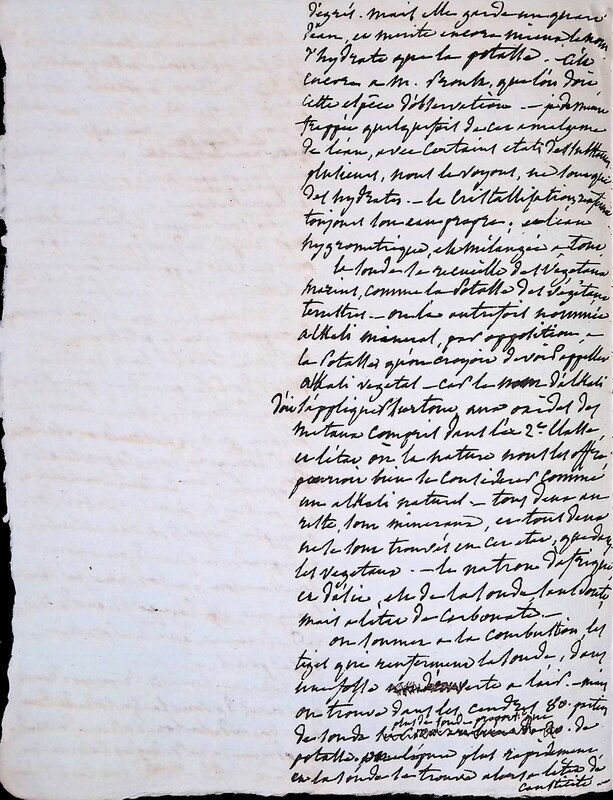 degrés. mais elle garde un quart
d'eau, et merite encore mieux le nom
d'hydrate que la potasse. - C'est
encore a M. Proust, que l'on doit
cette espèce d'observation. -
frappée quelquefois de cet amalgame
de l'eau, avec certains etats des substances
plusieurs, nous le voyons, ne sont que
des hydrates. - la cristallisation
toujours son eau propre; et l'eau
hygrometrique, est mélangée a tout
la soude se recueille des végétaux
marins, comme la Potasse des végétaux
terrestres - on l'a autrefois nommée
alkali mineral, par opposition, a
la Potasse qu'on croyoit devoir appeller
alkali vegetal - car le nom d'alkali
doit s'appliquer surtout aux oxides des
metaux compris dans la 2e Classe
et l'état où la nature nous les offre
pourroit bien le considérer comme
un alkali naturel. - tous deux au
reste, sont mineraux, et tous deux
ne se sont trouvés en cet etat, que dans
les vegetaux. - le natron d'afrique
et d'asie, est de la soude
mais a l'état de carbonate. -
on soumet a la combustion, les
tiges que renferment la soude, dans
une fosse ouverte a l'air. -
on trouve dans les cendres 80. parties
plus de soude
de soude de
potasse. plus rapidement
et la soude se trouve alors a l'état de